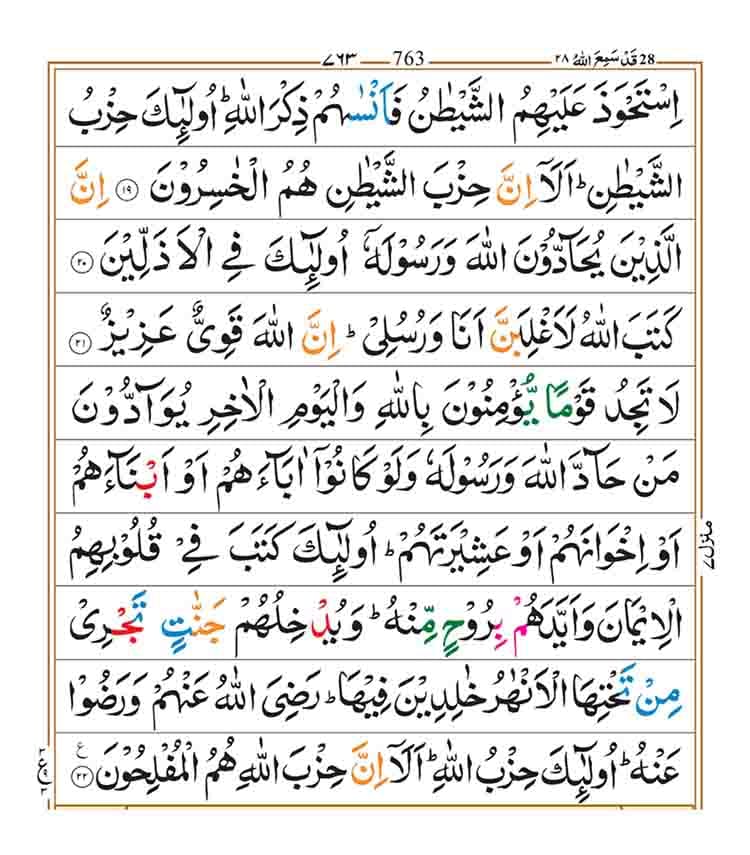 28 قَدْ سَمِعَ اللهُ ٢٨ 763 ٧٦٣
اِسْتَحْوَذَ عَلَيْهِمُ الشَّيْطٰنُ فَاَنْسٰىهُمْ ذِكْرَ اللّٰهِ ؕ اُولٰٓئِكَ حِزْبُ
الشَّيْطٰنِ ؕ اَلَاۤ اِنَّ حِزْبَ الشَّيْطٰنِ هُمُ الْخٰسِرُوْنَ ۝١٩ اِنَّ
الَّذِيْنَ يُحَآدُّوْنَ اللّٰهَ وَرَسُوْلَهٗۤ اُولٰٓئِكَ فِي الْاَذَلِّيْنَ ۝٢٠
كَتَبَ اللّٰهُ لَاَغْلِبَنَّ اَنَا وَرُسُلِيْ ؕ اِنَّ اللّٰهَ قَوِيٌّ عَزِيْزٌ ۝٢١
لَا تَجِدُ قَوْمًا يُّؤْمِنُوْنَ بِاللّٰهِ وَالْيَوْمِ الْاٰخِرِ يُوَآدُّوْنَ
مَنْ حَآدَّ اللّٰهَ وَرَسُوْلَهٗ وَلَوْ كَانُوْۤا اٰبَآءَهُمْ اَوْ اَبْنَآءَهُمْ
اَوْ اِخْوَانَهُمْ اَوْ عَشِيْرَتَهُمْ ؕ اُولٰٓئِكَ كَتَبَ فِيْ قُلُوْبِهِمُ
الْاِيْمَانَ وَاَيَّدَهُمْ بِرُوْحٍ مِّنْهُ ؕ وَيُدْخِلُهُمْ جَنّٰتٍ تَجْرِيْ
مِنْ تَحْتِهَا الْاَنْهٰرُ خٰلِدِيْنَ فِيْهَا ؕ رَضِيَ اللّٰهُ عَنْهُمْ وَرَضُوْا
عَنْهُ ؕ اُولٰٓئِكَ حِزْبُ اللّٰهِ ؕ اَلَاۤ اِنَّ حِزْبَ اللّٰهِ هُمُ الْمُفْلِحُوْنَ ۝٢٢ ع
منزل ٧